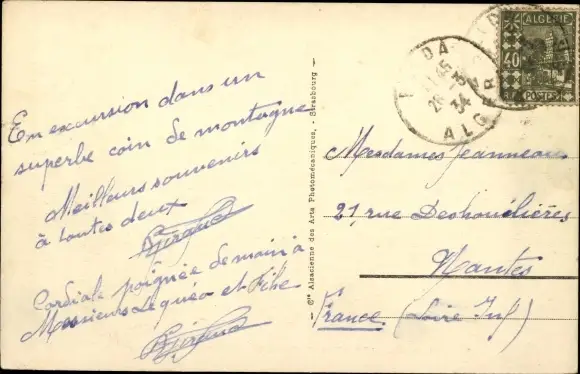 En excursion dans un
superbe coin de montagne
Meilleurs souvenirs
à toutes deux
Cordiale poignée de main à
Messieurs et
- Cie Alsacienne des Arts Photomécaniques, - Strasbourg -
ALGERIE
40
POSTES
34
ALGER
Mesdames Jeanneau
21, rue Deshoulières
Nantes
France (Loire Inf)